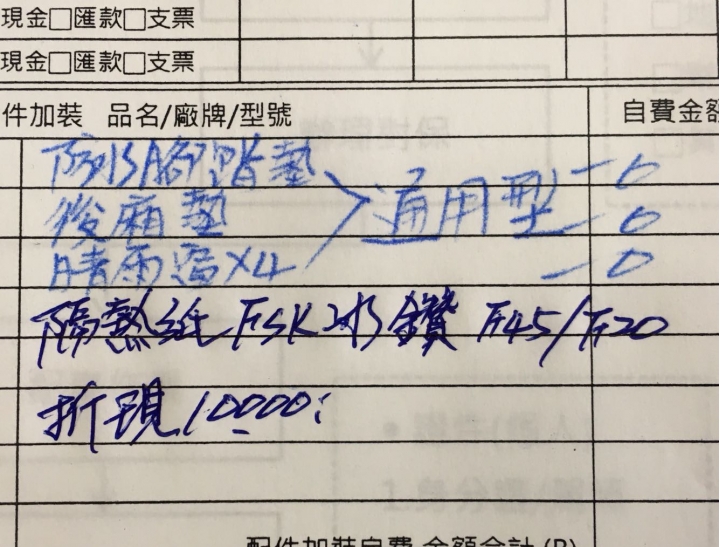 現金□匯款□支票
現金□匯款□支票
件加裝 品名/廠牌/型號 自費金額
防水腳踏墊 通用型 — 0
後廂墊 — 0
晴雨窗X4 — 0
隔熱紙 FSK冰鑽 F45/F20
折現10000:
配件加裝自費 金額合計(B)